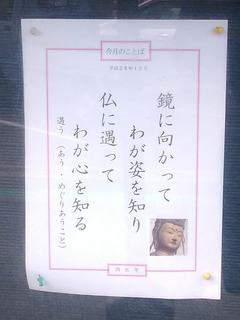 今月のことば
平成28年12月
鏡に向かって
わが姿を知り
仏に遇って
わが心を知る
遇う（あう・めぐりあうこと）